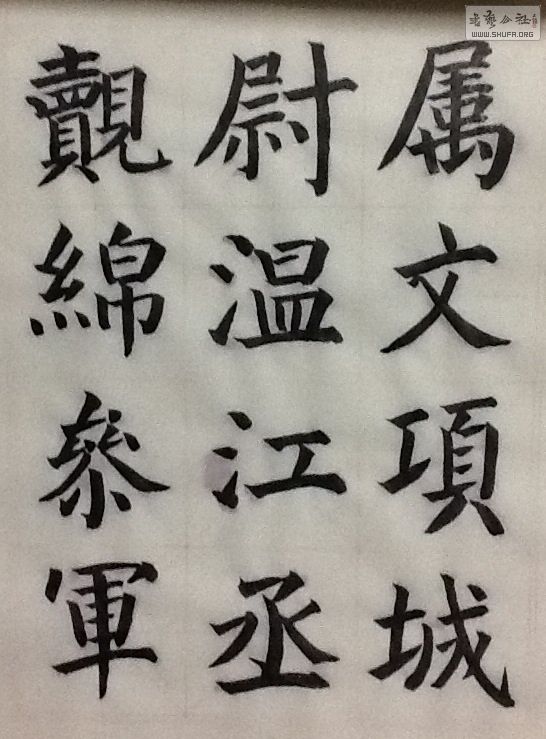 属文項城
尉温江丞
覿綿叅軍
書藝公社
WWW.SHUFA.ORG